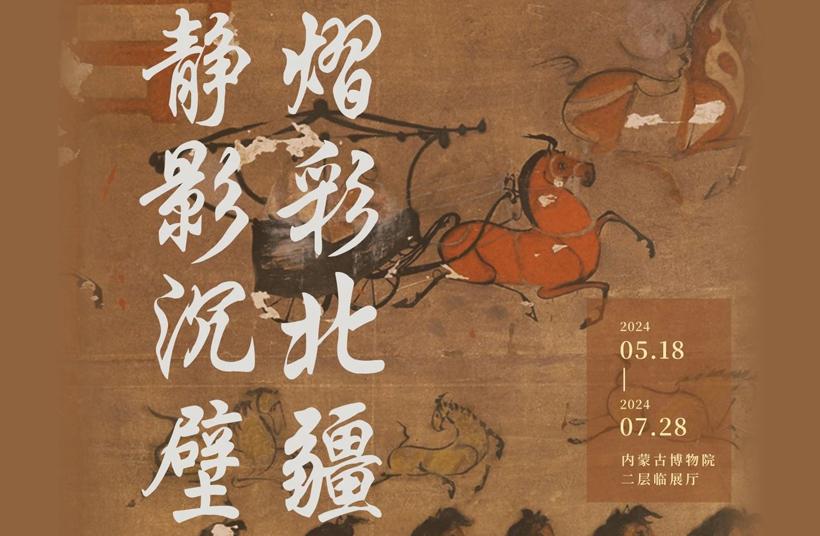 熠彩北疆
静影沉壁
2024
05.18
2024
07.28
内蒙古博物院
二层临展厅